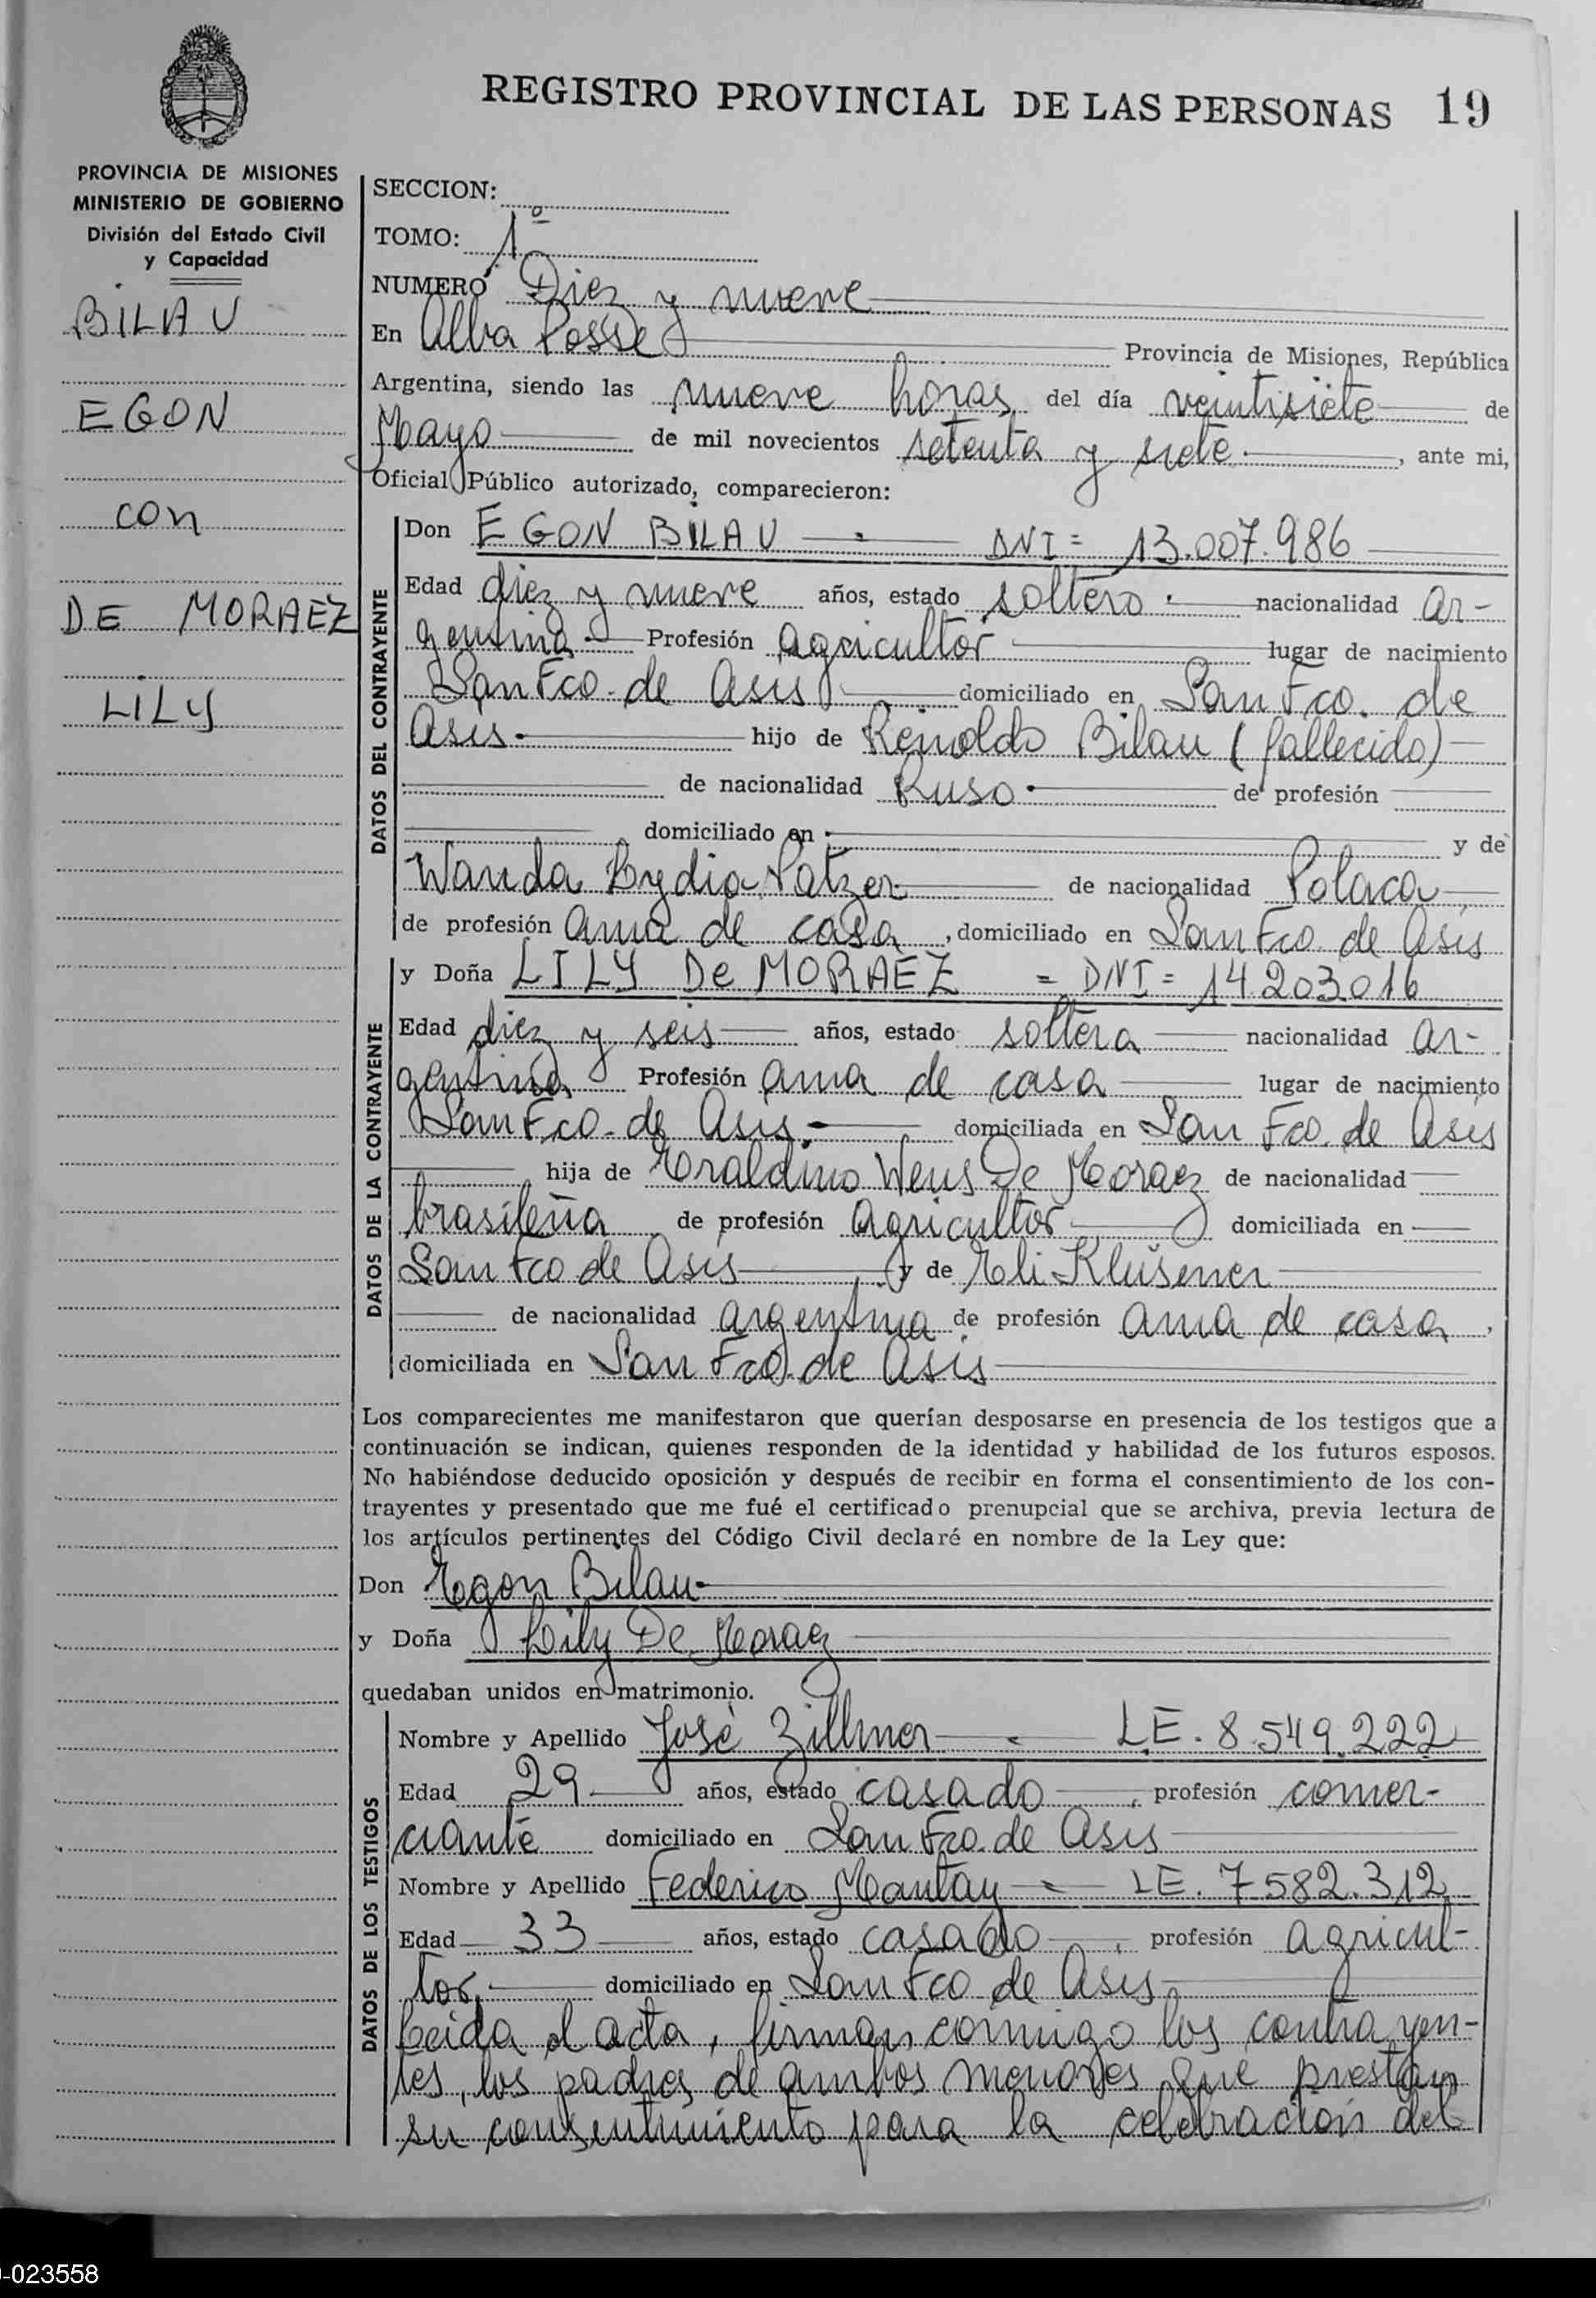 REGISTRO PROVINCIAL DE LAS PERSONAS 19
PROVINCIA DE MISIONES
MINISTERIO DE GOBIERNO
División del Estado Civil
y Capacidad
BILAU
EGON
con
DE MORAEZ
LILY
SECCION:
TOMO: 1º
NUMERO Diez y nueve
En Alba Posse Provincia de Misiones, República
Argentina, siendo las nueve horas del día veintisiete de
Mayo de mil novecientos setenta y siete, ante mi,
Oficial Público autorizado, comparecieron:
DATOS DEL CONTRAYENTE
Don EGON BILAU - DNI= 13.007.986
Edad diez y nueve años, estado soltero. nacionalidad ar-
gentina. Profesión agricultor lugar de nacimiento
San Fco. de Asis domiciliado en San Fco. de
Asis. hijo de Reinoldo Bilau (fallecido)
de nacionalidad Ruso. de profesión
domiciliado en y de
Wanda Lydia Patzer de nacionalidad Polaca
de profesión ama de casa, domiciliado en San Fco de Asis
DATOS DE LA CONTRAYENTE
y Doña LILY De MORAEZ = DNI= 14.203.016
Edad diez y seis años, estado soltera nacionalidad ar-
gentina Profesión ama de casa lugar de nacimiento
San Fco. de Asis. domiciliada en San Fco. de Asis
hija de Eraldino Weis De Moraez de nacionalidad
brasileña de profesión agricultor domiciliada en
San Fco de Asis y de Eli Klüsener
de nacionalidad argentina de profesión ama de casa,
domiciliada en San Fco. de Asis
Los comparecientes me manifestaron que querían desposarse en presencia de los testigos que a
continuación se indican, quienes responden de la identidad y habilidad de los futuros esposos.
No habiéndose deducido oposición y después de recibir en forma el consentimiento de los con-
trayentes y presentado que me fué el certificado prenupcial que se archiva, previa lectura de
los artículos pertinentes del Código Civil declaré en nombre de la Ley que:
Don Egon Bilau
y Doña Lily De Moraez
quedaban unidos en matrimonio.
DATOS DE LOS TESTIGOS
Nombre y Apellido José Zillmer - LE. 8.549.222
Edad 29 años, estado casado, profesión comer-
ciante domiciliado en San Fco. de Asis
Nombre y Apellido Federico Mantay - LE. 7.582.312
Edad 33 años, estado casado, profesión agricul-
tor, domiciliado en San Fco de Asis
Leida el acta, firman conmigo los contrayen-
tes, los padres de ambos menores que prestan
su consentimiento para la celebración del
-023558